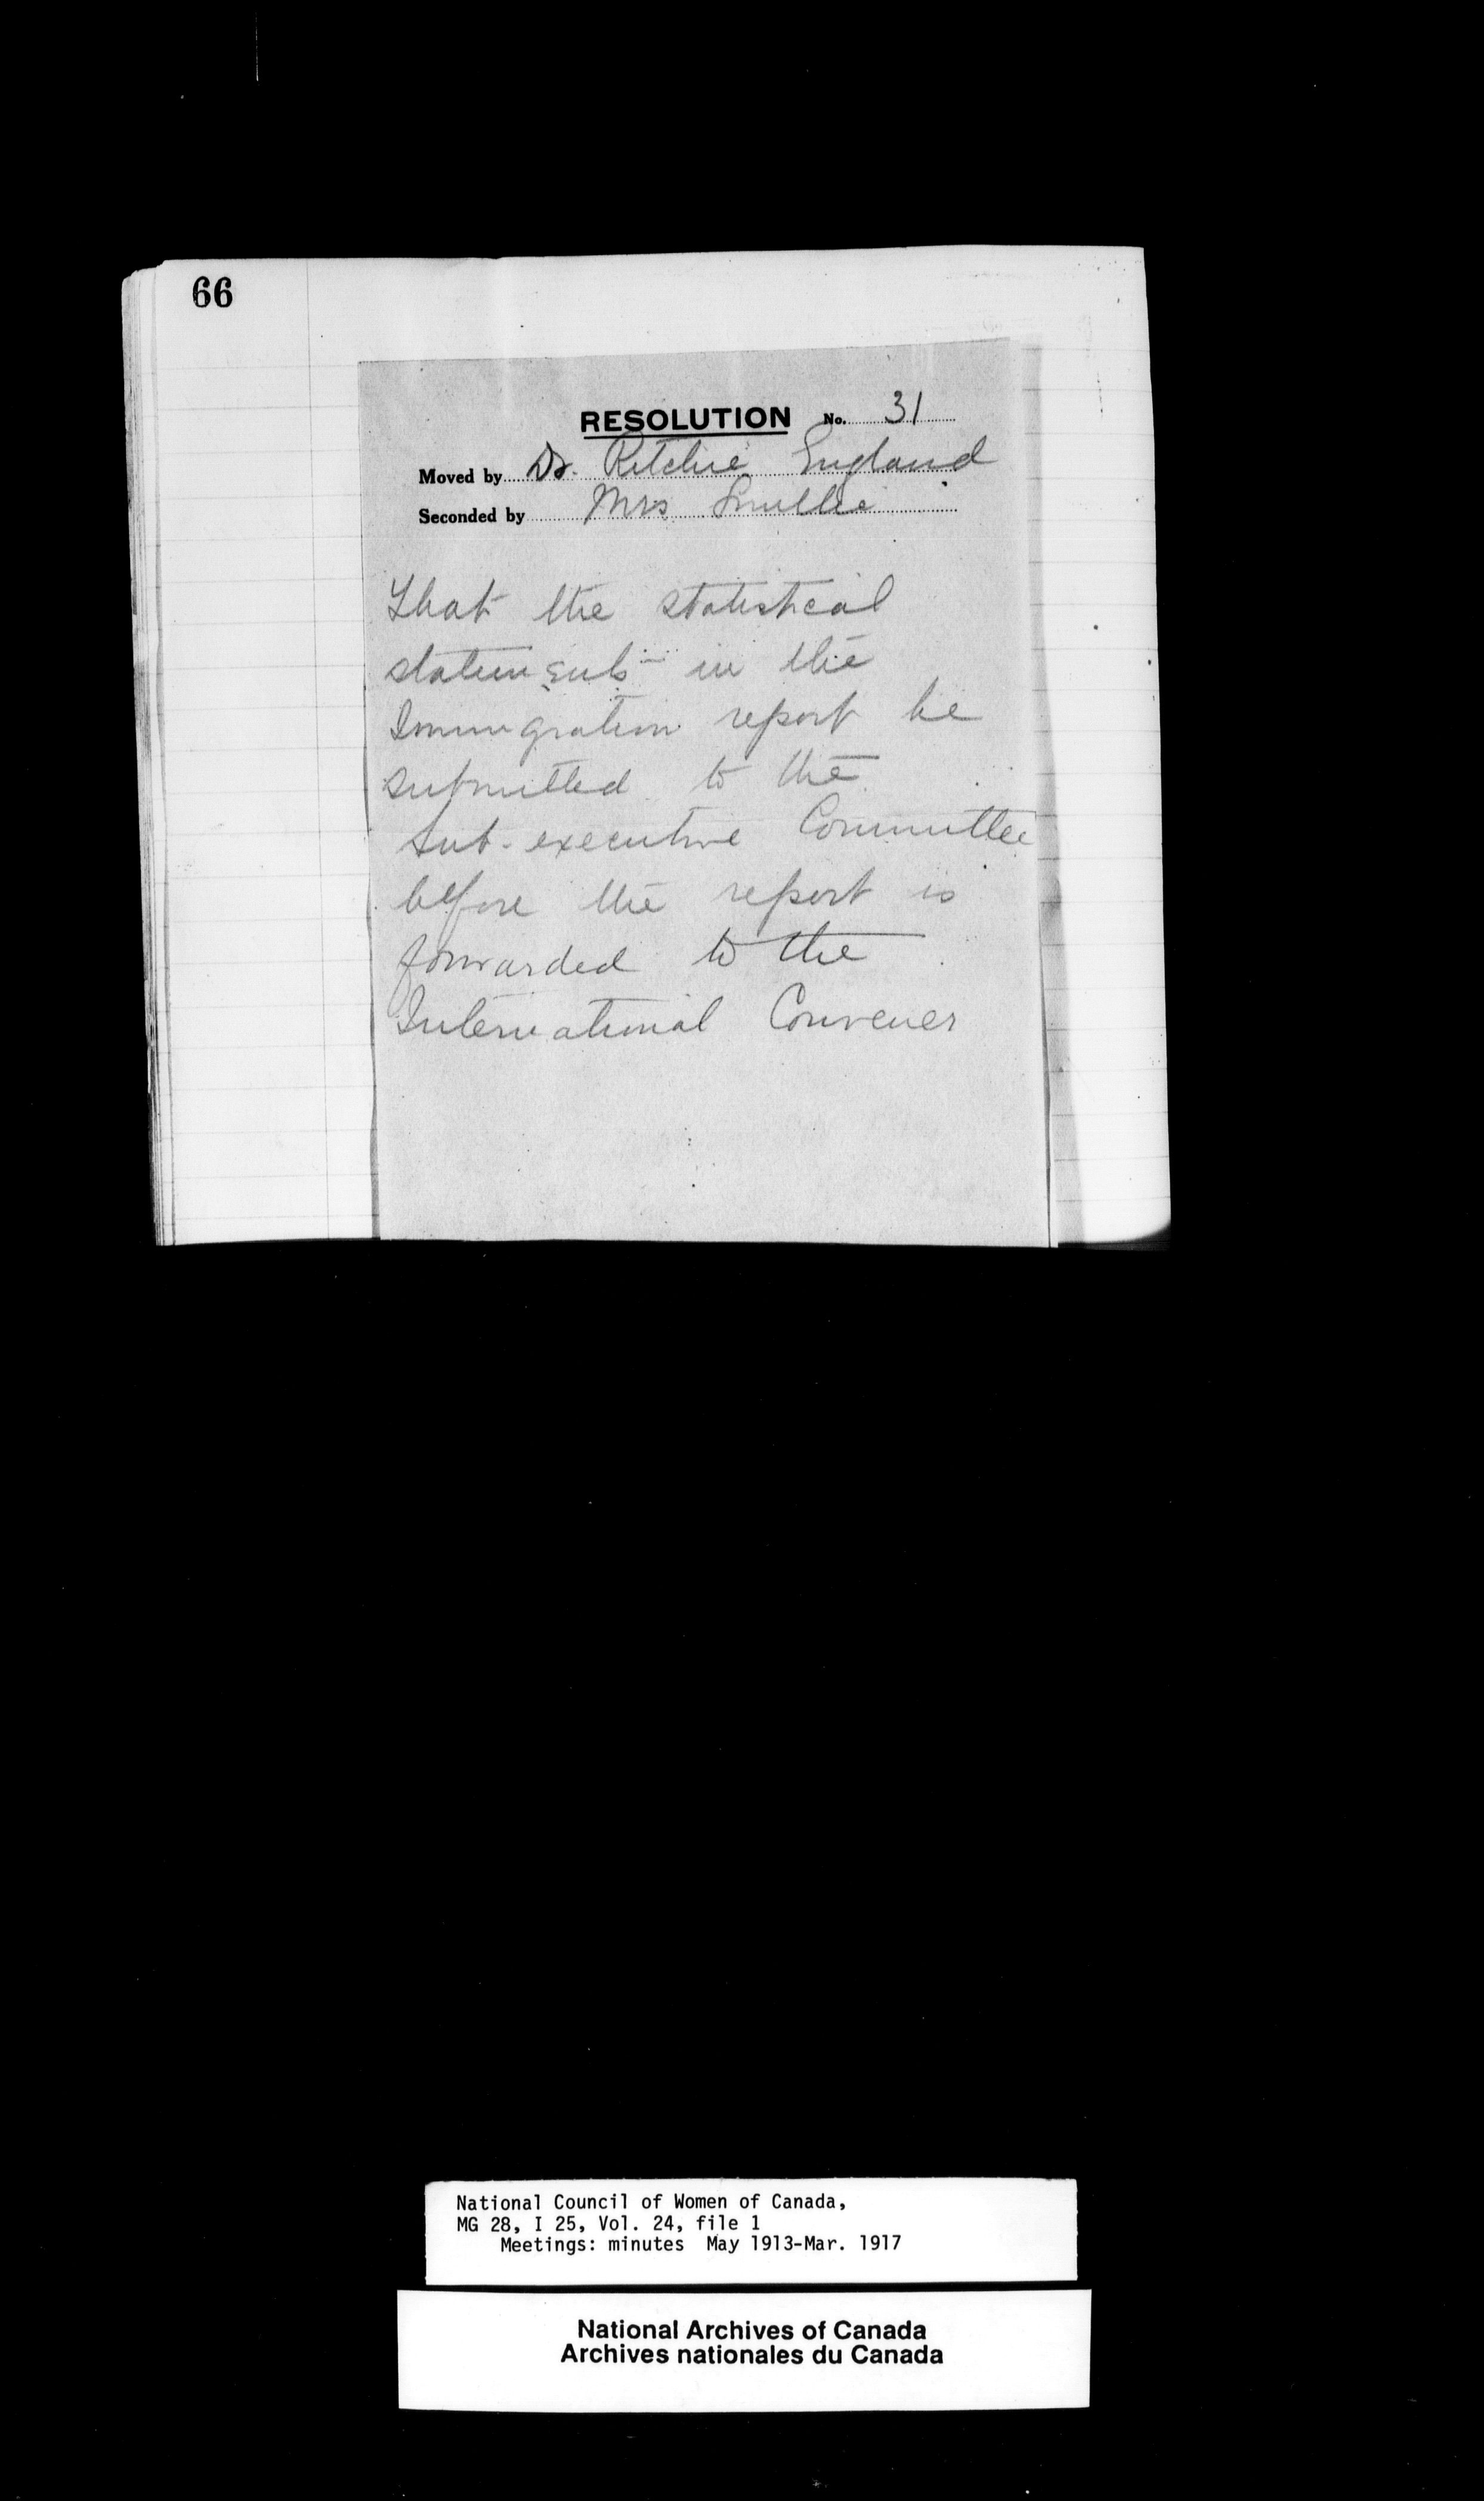 66
RESOLUTION No. 31
Moved by Dr. Ritchie England
Seconded by Mrs Smillie
That the statistical
statements in the
Immigration report be
submitted to the
sub-executive Committee
before the report is
forwarded to the
International Convener
National Council of Women of Canada,
MG 28, I 25, Vol. 24, file 1
Meetings: minutes May 1913-Mar. 1917
National Archives of Canada
Archives nationales du Canada